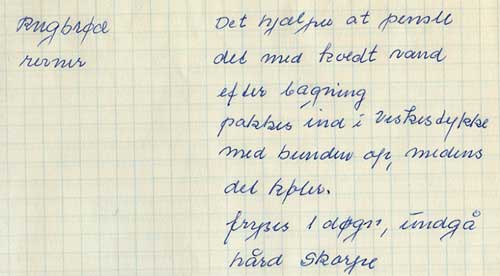 Rugbrød
revner
Det hjælper at pensle
det med kvedt vand
efter bagning
pakkes ind i veskestykke
med bunden op, medens
det køler.
fryses 1 døgn, undgå
hård skorpe